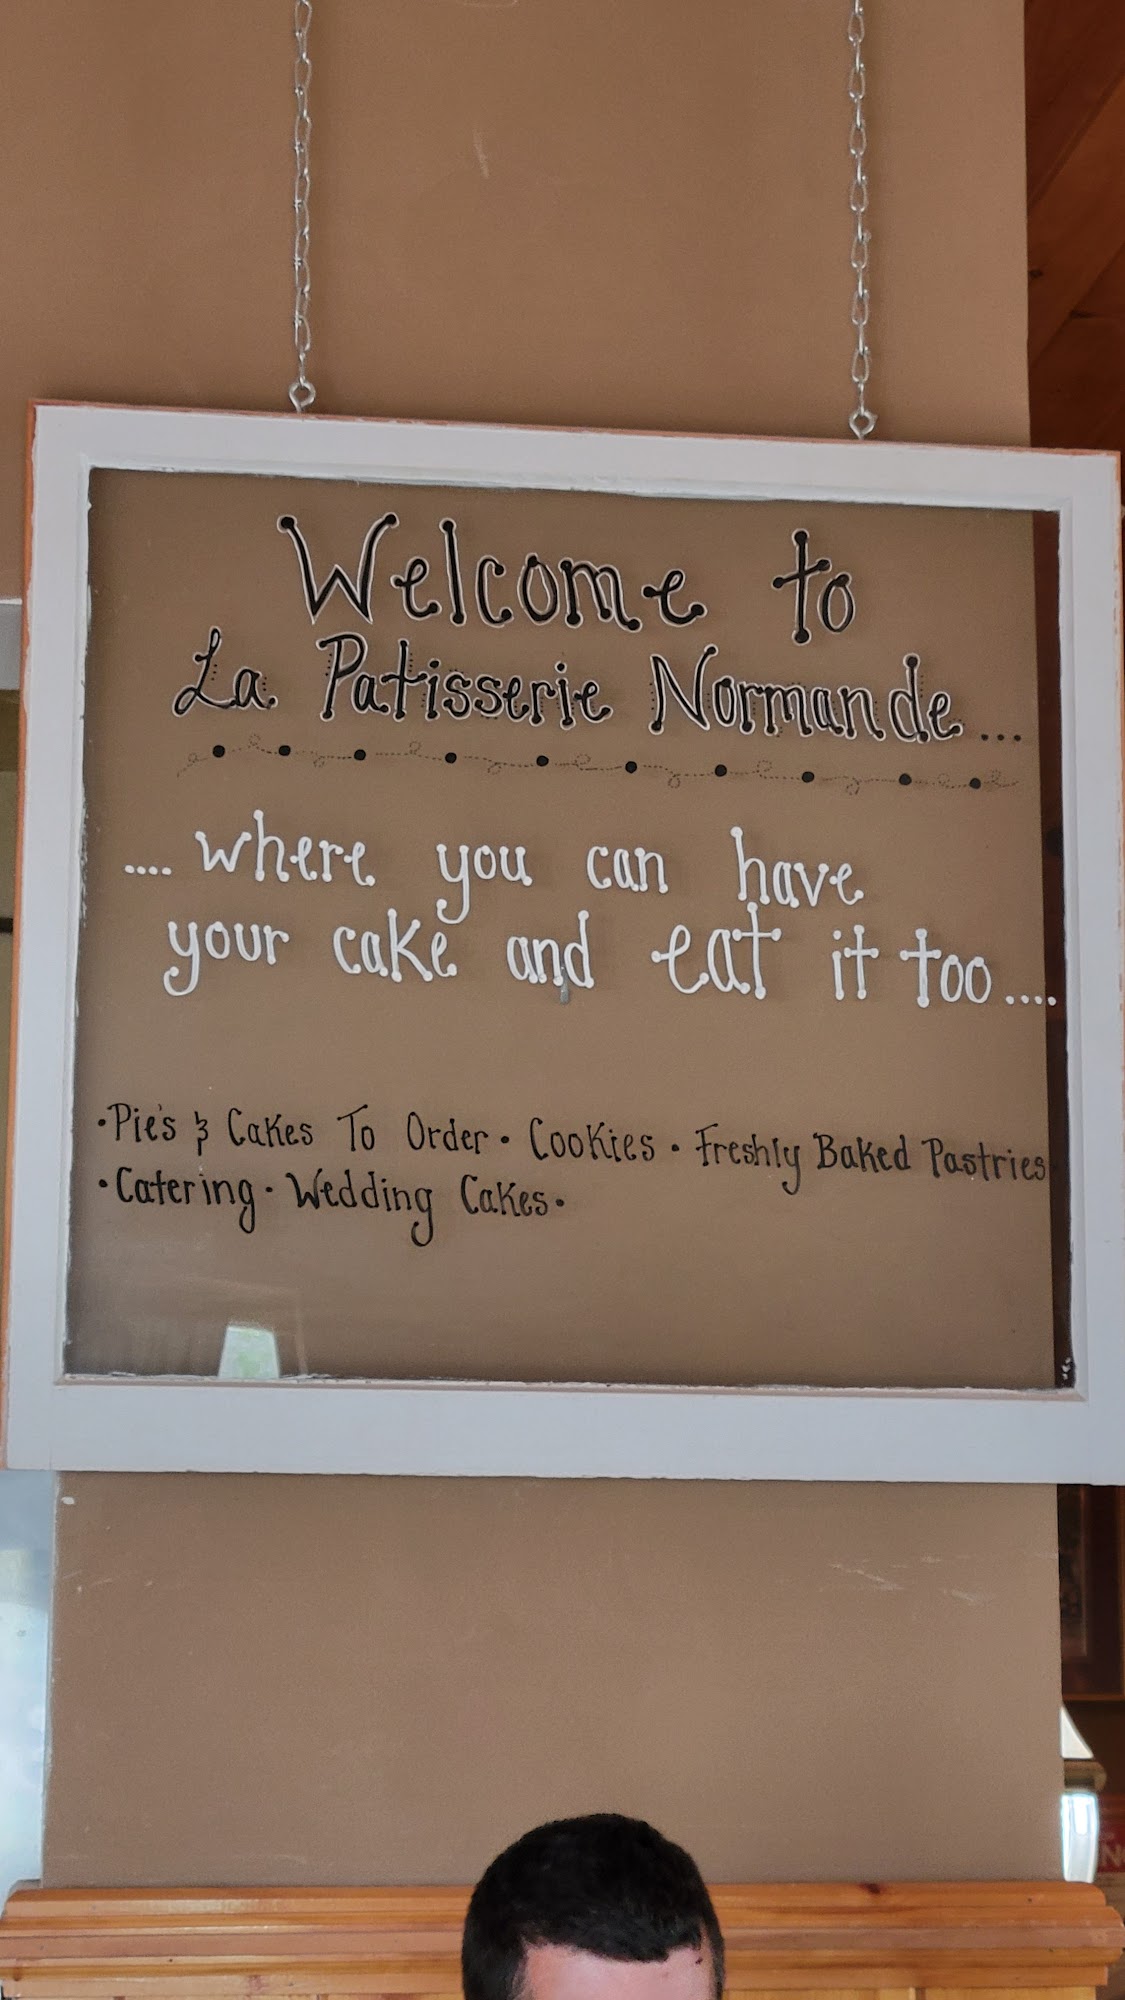 Welcome to
La Patisserie Normande...
....where you can have
your cake and eat it too....
·Pie's & Cakes To Order · Cookies · Freshly Baked Pastries
·Catering · Wedding Cakes·